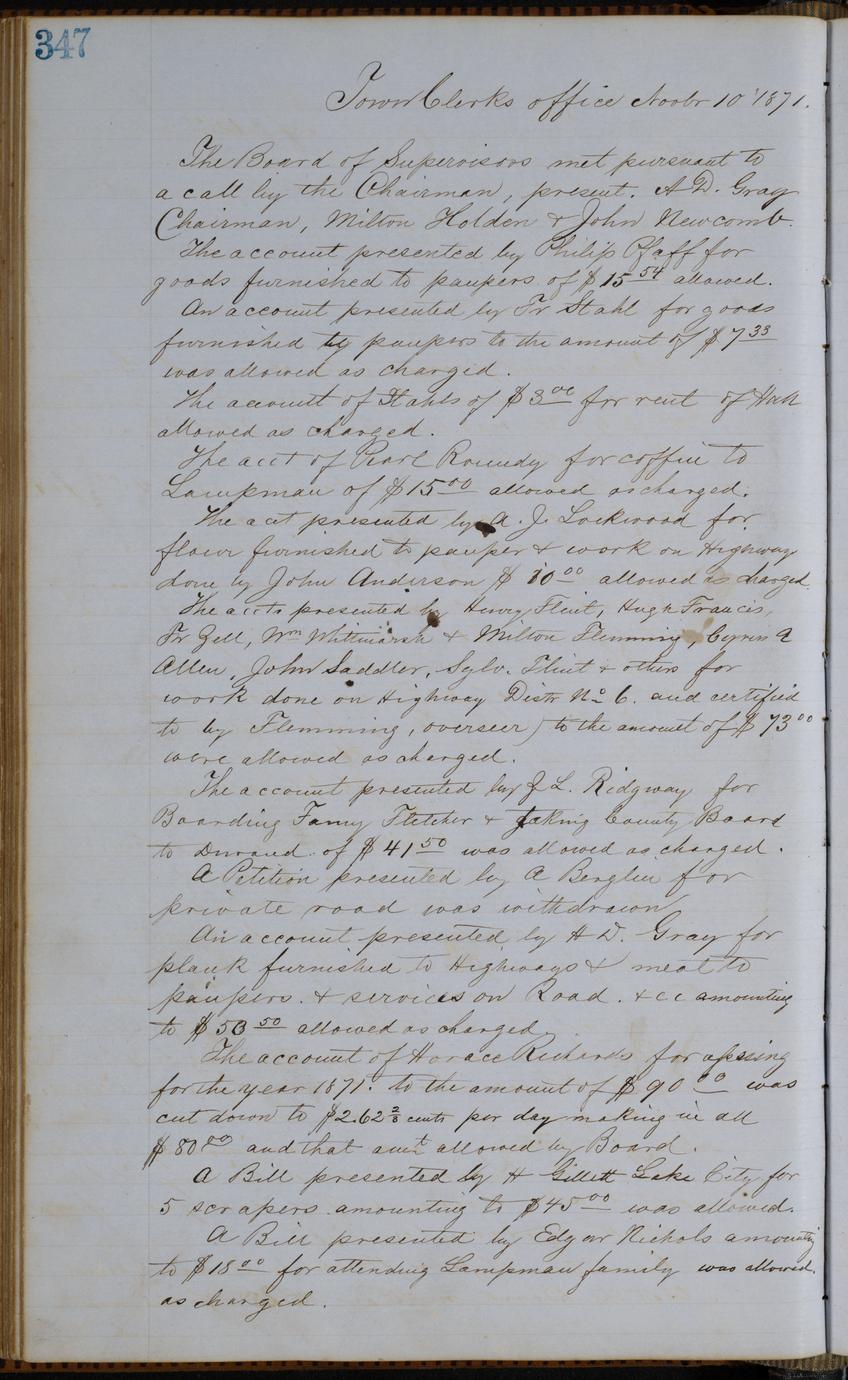 347
Town Clerks office Novbr 10' 1871.
The Board of Supervisors met pursuant to
a call by the Chairman, present. A D. Gray
Chairman, Milton Holden & John Newcomb.
The account presented by Philip Pfaff for
goods furnished to paupers of $15 54 allowed.
An account presented by Fr Stahl for goods
furnished to paupers to the amount of $7 33
was allowed as charged.
The account of Stahls of $3 00 for rent of Hall
allowed as charged.
The acct of Carl Roundy for coffin to
Lampman of $15 00 allowed as charged.
The acct presented by A. J. Lockwood for
flour furnished to pauper & work on Highway
done by John Anderson $10 00 allowed as charged.
The accts presented by Henry Flint, Hugh Francis,
Fr Zell, Wm Whitmarsh & Milton Flemming, Cyrus A
Allen, John Saddler, Sylv. Flint & others for
work done on Highway Distr No 6. and certified
to by Flemming, overseer) to the amount of $73 00
were allowed as charged.
The account presented by J L. Ridgway for
Boarding Fanny Fletcher & taking County Board
to Durand of $41 50 was allowed as charged.
A Petition presented by A Berglin for
private road was withdrawn
An account presented by H D. Gray for
plank furnished to Highways & meat to
paupers. & services on Road. & cc amounting
to $53 50 allowed as charged
The account of Horace Richards for assessing
for the year 1871. to the amount of $90 00 was
cut down to $2.62 2/3 cents per day making in all
$80 00 and that amt allowed by Board.
A Bill presented by H Gillett Lake City for
5 scrapers amounting to $45 00 was allowed.
A Bill presented by Edgar Nichols amounting
to $18 00 for attending Lampman family was allowed.
as charged.